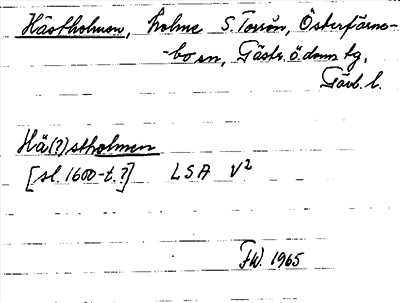 Hästholmen, holme S. Torrön, Österfärne-
-bo sn, Gästr. ö. doms tg,
Gävl. l.
Hä(?)stholmen
[sl. 1600-t.?] LSA V2
FW. 1965